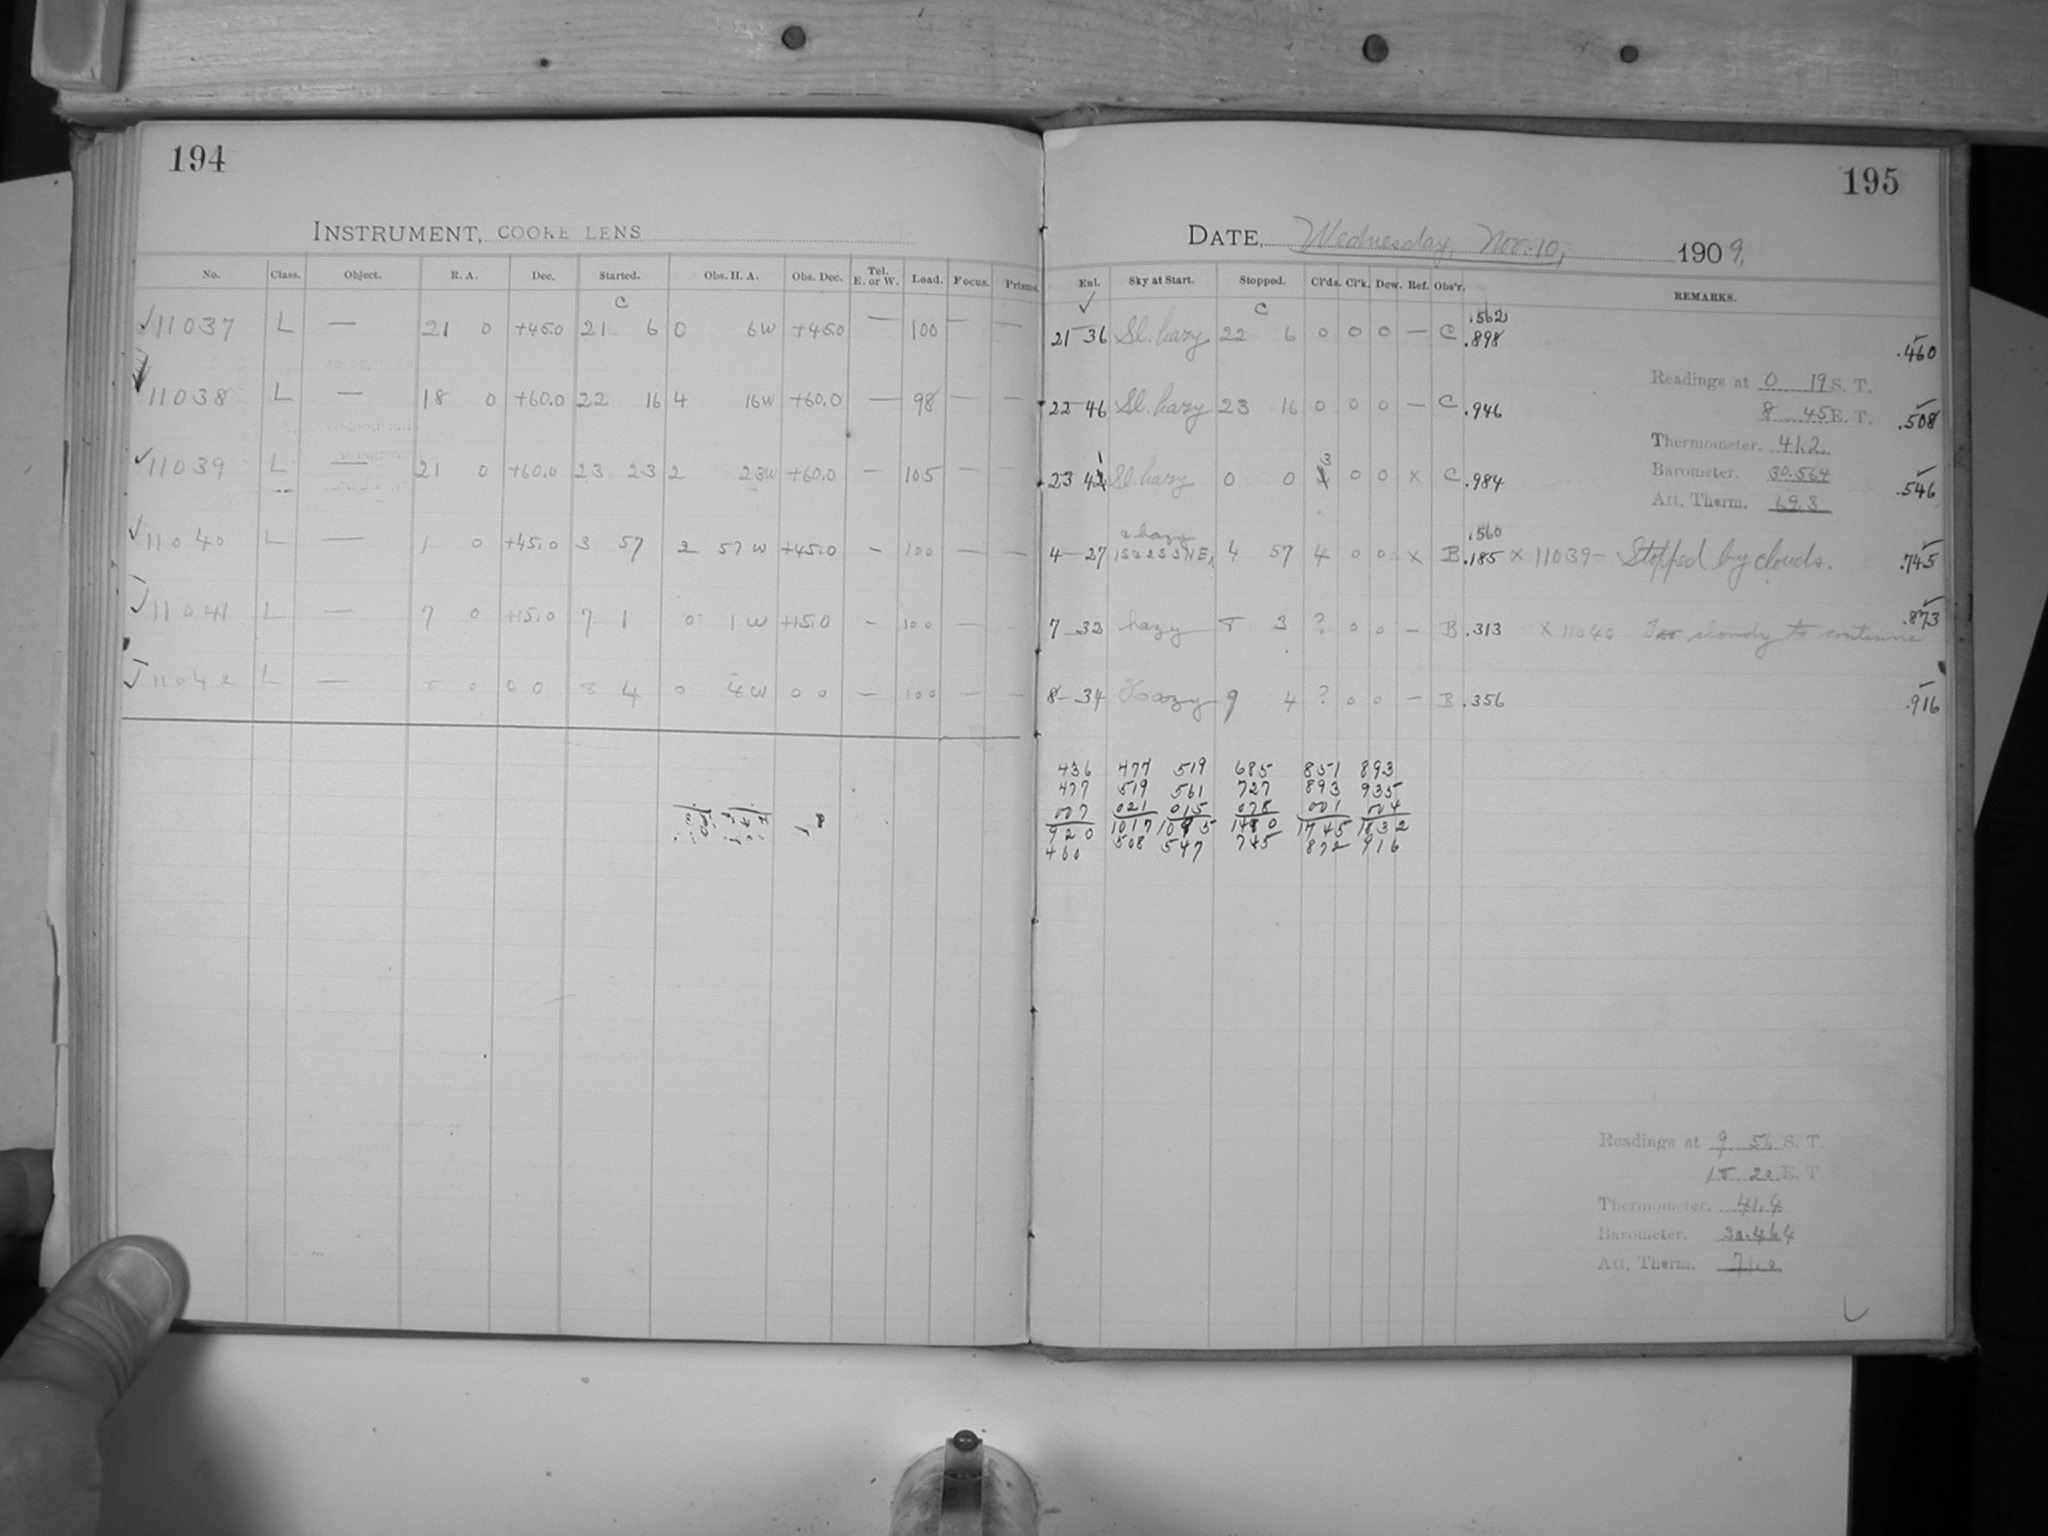 194
INSTRUMENT, COOKE LENS
No. Class. Object. R. A. Dec. Started. Obs. H. A. Obs. Dec. Tel. E. or W. Load. Focus. Prisms.
C
✓11037 L — 21 0 +45.0 21 6 0 6W +45.0 — 100 — —
✓11038 L — 18 0 +60.0 22 16 4 16W +60.0 — 98 — —
✓11039 L — 21 0 +60.0 23 23 2 23W +60.0 — 105 — —
✓11040 L — 1 0 +45.0 3 57 2 57W +45.0 — 100 — —
✓11041 L — 7 0 +15.0 7 1 0 1W +15.0 — 100 — —
✓11042 L — 8 0 0 0 8 4 0 4W 0 0 — 100 — —
195
DATE, Wednesday, Nov. 10, 1909.
Enl. Sky at Start. Stopped. Cl'ds. Cl'k. Dew. Ref. Obs'r. REMARKS.
✓ C .562
21 36 Sl. hazy 22 6 0 0 0 — C .898 .460
Readings at 0 19 S. T.
22 46 Sl. hazy 23 16 0 0 0 — C .946 8 45 E. T. .508
Thermometer. 41.2
23 41 Sl. hazy 0 0 3 0 0 x C .984 Barometer. 30.564 .546
Att. Therm. 69.8
.560
4 27 4 57 4 0 0 x B .185 x 11039— Stopped by clouds. .745
7 32 hazy 8 3 ? 0 0 — B .313 x 11040 Too cloudy to continue .873
8 34 Hazy 9 4 ? 0 0 — B .356 .916
436 477 519 685 851 893
477 519 561 727 893 935
007 021 015 078 001 004
920 1017 1095 1480 1745 1832
460 508 547 745 872 916
Readings at 9 56 S. T.
18 20 E. T.
Thermometer. 41.4
Barometer. 30.464
Att. Therm. 71.2